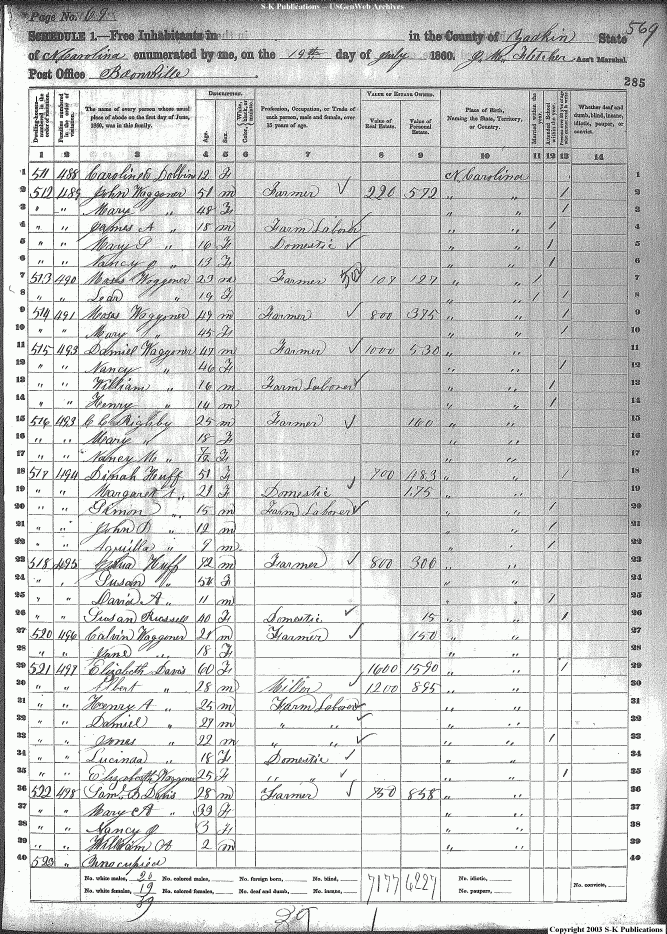 S-K Publications -- USGenWeb Archives
Page No. 69
569
SCHEDULE 1.—Free Inhabitants in in the County of Yadkin State
of N Carolina enumerated by me, on the 19th day of July 1860. Fletcher Ass't Marshal.
Post Office Boonville
285
DESCRIPTION. VALUE OF ESTATE OWNED.
The name of every person whose usual place of abode on the first day of June, 1860, was in this family.
Age. Sex.
Profession, Occupation, or Trade of each person, male and female, over 15 years of age.
Value of Real Estate. Value of Personal Estate.
Place of Birth, Naming the State, Territory, or Country.
Married within the year. Attended School within the year.
Whether deaf and dumb, blind, insane, idiotic, pauper, or convict.
1 2 3 4 5 6 7 8 9 10 11 12 13 14
1 511 488 Dobbins 12 F N. Carolina 1
2 512 489 John Waggoner 51 m Farmer 220 572 " " / 2
3 " " Mary " 48 F " " / 3
4 " " James A " 18 m Farm Laborer " " / 4
5 " " Mary " 16 F Domestic " " / 5
6 " " Nancy " 13 F " " / 6
7 513 490 Moses Waggoner 23 m Farmer 127 " " / 7
8 " " Lear " 19 F " " / / 8
9 514 491 Moses Waggoner 49 m Farmer 800 375 " " / 9
10 " " Mary " 45 F " " / 10
11 515 492 Daniel Waggoner 47 m Farmer 1000 530 " " 11
12 " " Nancy " 46 F " " / 12
13 " " William " 16 m Farm Laborer " " / 13
14 " " Henry " 14 m " " / 14
15 516 493 C C Rigsby 25 m Farmer 100 " " 15
16 " " Mary " 18 F " " 16
17 " " Nancy M " F " " 17
18 517 494 Dinah Huff 51 F 700 483 " " / 18
19 " " Margaret A " 21 F Domestic 175 " " 19
20 " " " 15 m Farm Laborer " " / 20
21 " " John D " 12 m " " / 21
22 " " Aquilla " 9 m " " / 22
23 518 495 Huff 72 m Farmer 800 300 " " 23
24 " " Susan " F " " 24
25 " " David A " 11 m " " / 25
26 " " Susan Russell 40 F Domestic 15 " " / 26
27 520 496 Calvin Waggoner 21 m Farmer 150 " " 27
28 " " Jane " 18 F " " 28
29 521 497 Elizabeth Davis 60 F 1600 1590 " " / 29
30 " " Albert " 28 m Miller 1200 895 " " 30
31 " " Henry A " 25 m Farm Laborer " " 31
32 " " Daniel " m " " " " 32
33 " " Jones " 22 m " " " " / 33
34 " " Lucinda " 18 F Domestic " " 34
35 " " Elizabeth Waggoner 25 F " " " " / 35
36 522 498 Saml B Davis 28 m Farmer 750 858 " " 36
37 " " Mary A " 39 F " " 37
38 " " Nancy J " 3 F " " 38
39 " " William A " 2 m " " 39
40 523 " Unoccupied 40
No. white males, 20 No. colored males, No. foreign born, No. blind, 7177 6227 No. idiotic, No. convicts,
No. white females, 19 No. colored females, No. deaf and dumb, No. insane, No. paupers,
39
39
Copyright 2003 S-K Publications